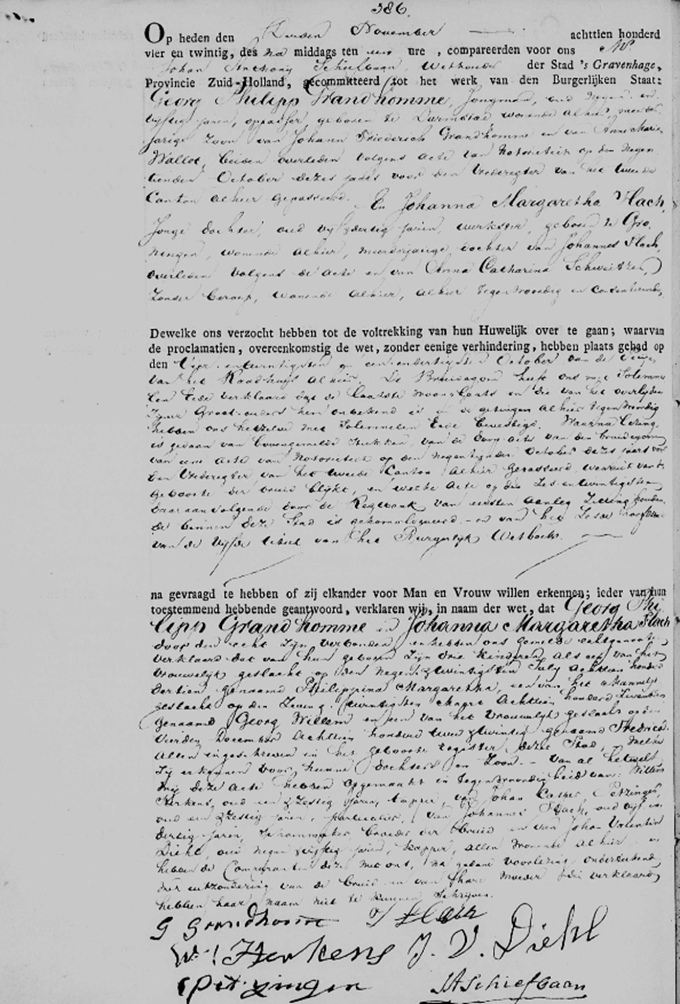 386.
Op heden den November achttien honderd
vier en twintig, des na middags ten ure, compareerden voor ons Mr
Johan Anthony Schiefbaan, Wethouder der Stad 's Gravenhage,
Provincie Zuid-Holland, gecommitteerd tot het werk van den Burgerlijken Staat:
Georg Philipp Grandhomme, Jongman, oud Negen en
vijftig jaren, oppasser, geboren te Darmstad wonende alhier, meerder
jarige Zoon van Johann Friederich Grandhomme en van Anna Maria
Wallot, beiden overleden volgens acte van Notorieteit op den Negen
tienden October dezes jaars voor den Vrederegter van het tweede
Canton alhier gepasseerd. En Johanna Margaretha Flach,
Jonge dochter, oud vijf dertig jaren, werkster, geboren te Gro
ningen, wonende alhier, meerderjarige dochter van Johannes Flach,
overleden volgens de acte en van Anna Catharina
Zonder beroep, wonende alhier, alhier tegenwoordig en
Dewelke ons verzocht hebben tot de voltrekking van hun Huwelijk over te gaan; waarvan
de proclamatien, overeenkomstig de wet, zonder eenige verhindering, hebben plaats gehad op
den Vier entwintigsten en eenendertigsten October van de
van het Raadhuis alhier. De Bruidegom heeft ons met Solemne
len Eede verklaard dat de laatste woonplaats en die van het overlijden
zijner Grootouders hem onbekend is en de getuigen alhier tegenwoordig
hebben ons hetzelve met Solemnelen Eede bevestigd. Waarna lezing
is gedaan van bovengemelde Stukken van de doop acte van den bruidegom
van eene acte van Notorieteit op den Negentienden October dezes jaars voor
den Vrederegter van het tweede Canton alhier gepasseerd, waaruit van de
geboorte der bruid blijkt, en welke acte op den Zes en twintigsten
daaraanvolgende door de Regtbank van eersten aanleg Zitting houden
de binnen deze Stad is gehomologeerd en van het Zesde hoofdstuk
van de vijfde titel van het Burgerlijk Wetboek.
na gevraagd te hebben of zij elkander voor Man en Vrouw willen erkennen; ieder van hun
toestemmend hebbende geantwoord, verklaren wij, in naam der wet, dat Georg Phi
lipp Grandhomme en Johanna Margaretha Flach
door den echt zijn verbonden en hebben ons gemelde echtgenoten
verklaard dat van hun geboren zijn drie kinderen als een van het
vrouwelijk geslacht op den Negen twintigsten July Achttien honderd
dertien genaamd Philippina Margaretha, een van het Mannelijk
geslacht op den Zeven twintigsten Achttien honderd
genaamd Georg Willem en een van het Vrouwelijk geslacht op den
Vierden December Achttien honderd twee twintig genaamd
Allen ingeschreven in het geboorte register dezer Stad,
Zij erkennen voor hunne dochters en Zoon. Van al hetwelk
Wij deze Acte hebben opgemaakt in tegenwoordigheid van Willem
Herkens, oud een Zestig jaren, tapper, van Johan Caspar Pitzinger
oud een Zestig jaren, particulier, van Johannes Flach, oud vijf en
dertig jaren, Schoenmaker broeder der bruid en van Johan Valentin
Diehl, oud Negen vijftig jaren, Kapper, allen wonende alhier en
hebben de Comparanten deze met ons, na gedane voorlezing, onderteekend,
met uitzondering van de bruid en van hare Moeder die verklaarden
hebben haar naam niet te kunnen Schrijven.
G Grandhomme J Flach
Wm Herkens J. V. Diehl
C Pitzinger JASchiefbaan